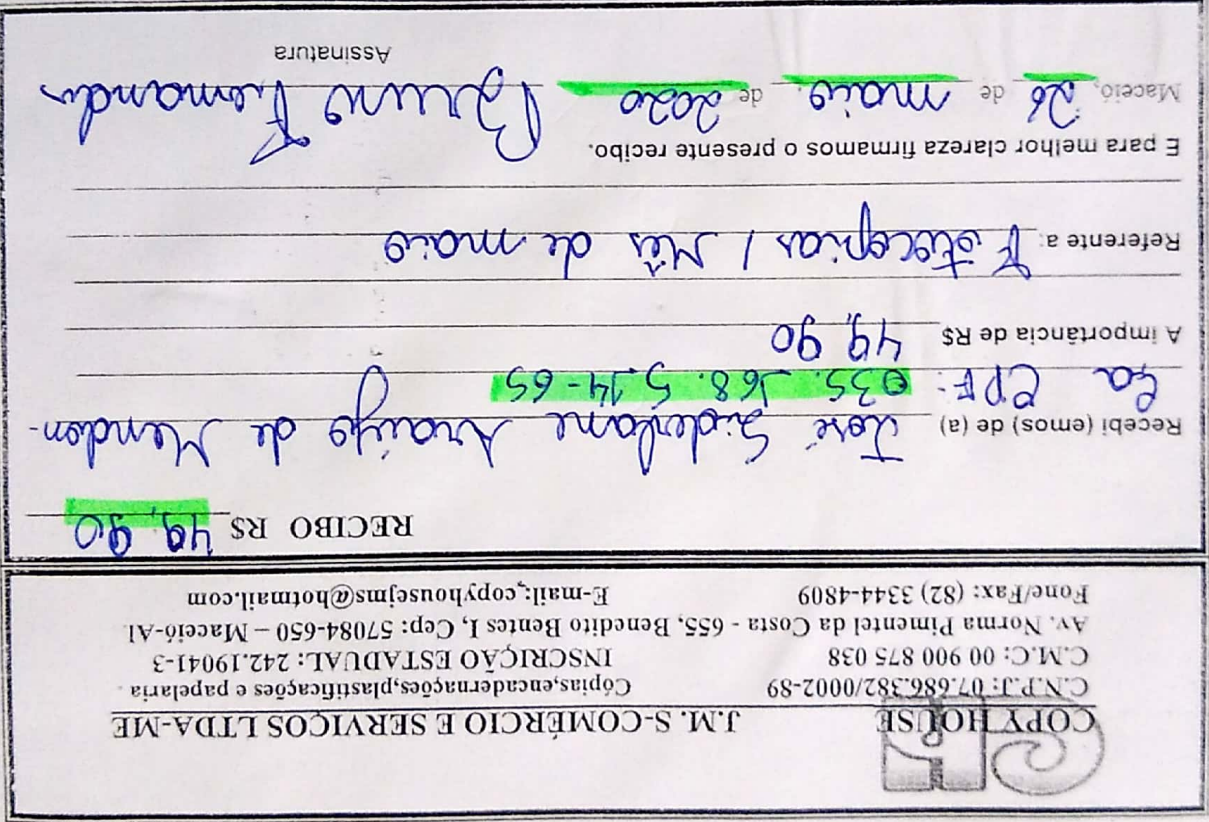 COPY HOUSE J.M. S-COMÉRCIO E SERVIÇOS LTDA-ME
C.N.P.J: 07.686.382/0002-89 Cópias,encadernações,plastificações e papelaria
C.M.C: 00 900 875 038 INSCRIÇÃO ESTADUAL: 242.19041-3
Av. Norma Pimentel da Costa - 655, Benedito Bentes I, Cep: 57084-650 – Maceió-Al
Fone/Fax: (82) 3344-4809 E-mail:copyhousejms@hotmail.com
RECIBO R$ 49,90
Recebi (emos) de (a) José Siderlane Araújo de Mendon-
ça CPF: 035.168.514-65
A importância de R$ 49,90
Referente a: Fotocopias / Mês de maio
E para melhor clareza firmamos o presente recibo.
Maceió, 26 de maio. de 2020 Bruno Fernandes
Assinatura